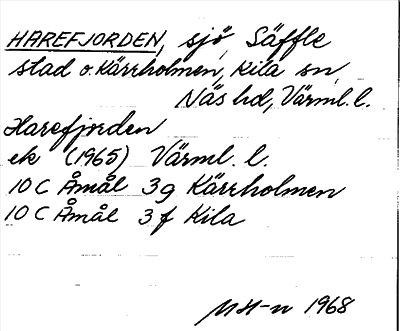 HAREFJORDEN, sjö, Säffle
stad o. Kärrholmen, Kila sn,
Näs hd, Värml. l.
Harefjorden
ek (1965) Värml. l.
10 C Åmål 3g Kärrholmen
10 C Åmål 3f Kila
MH-n 1968